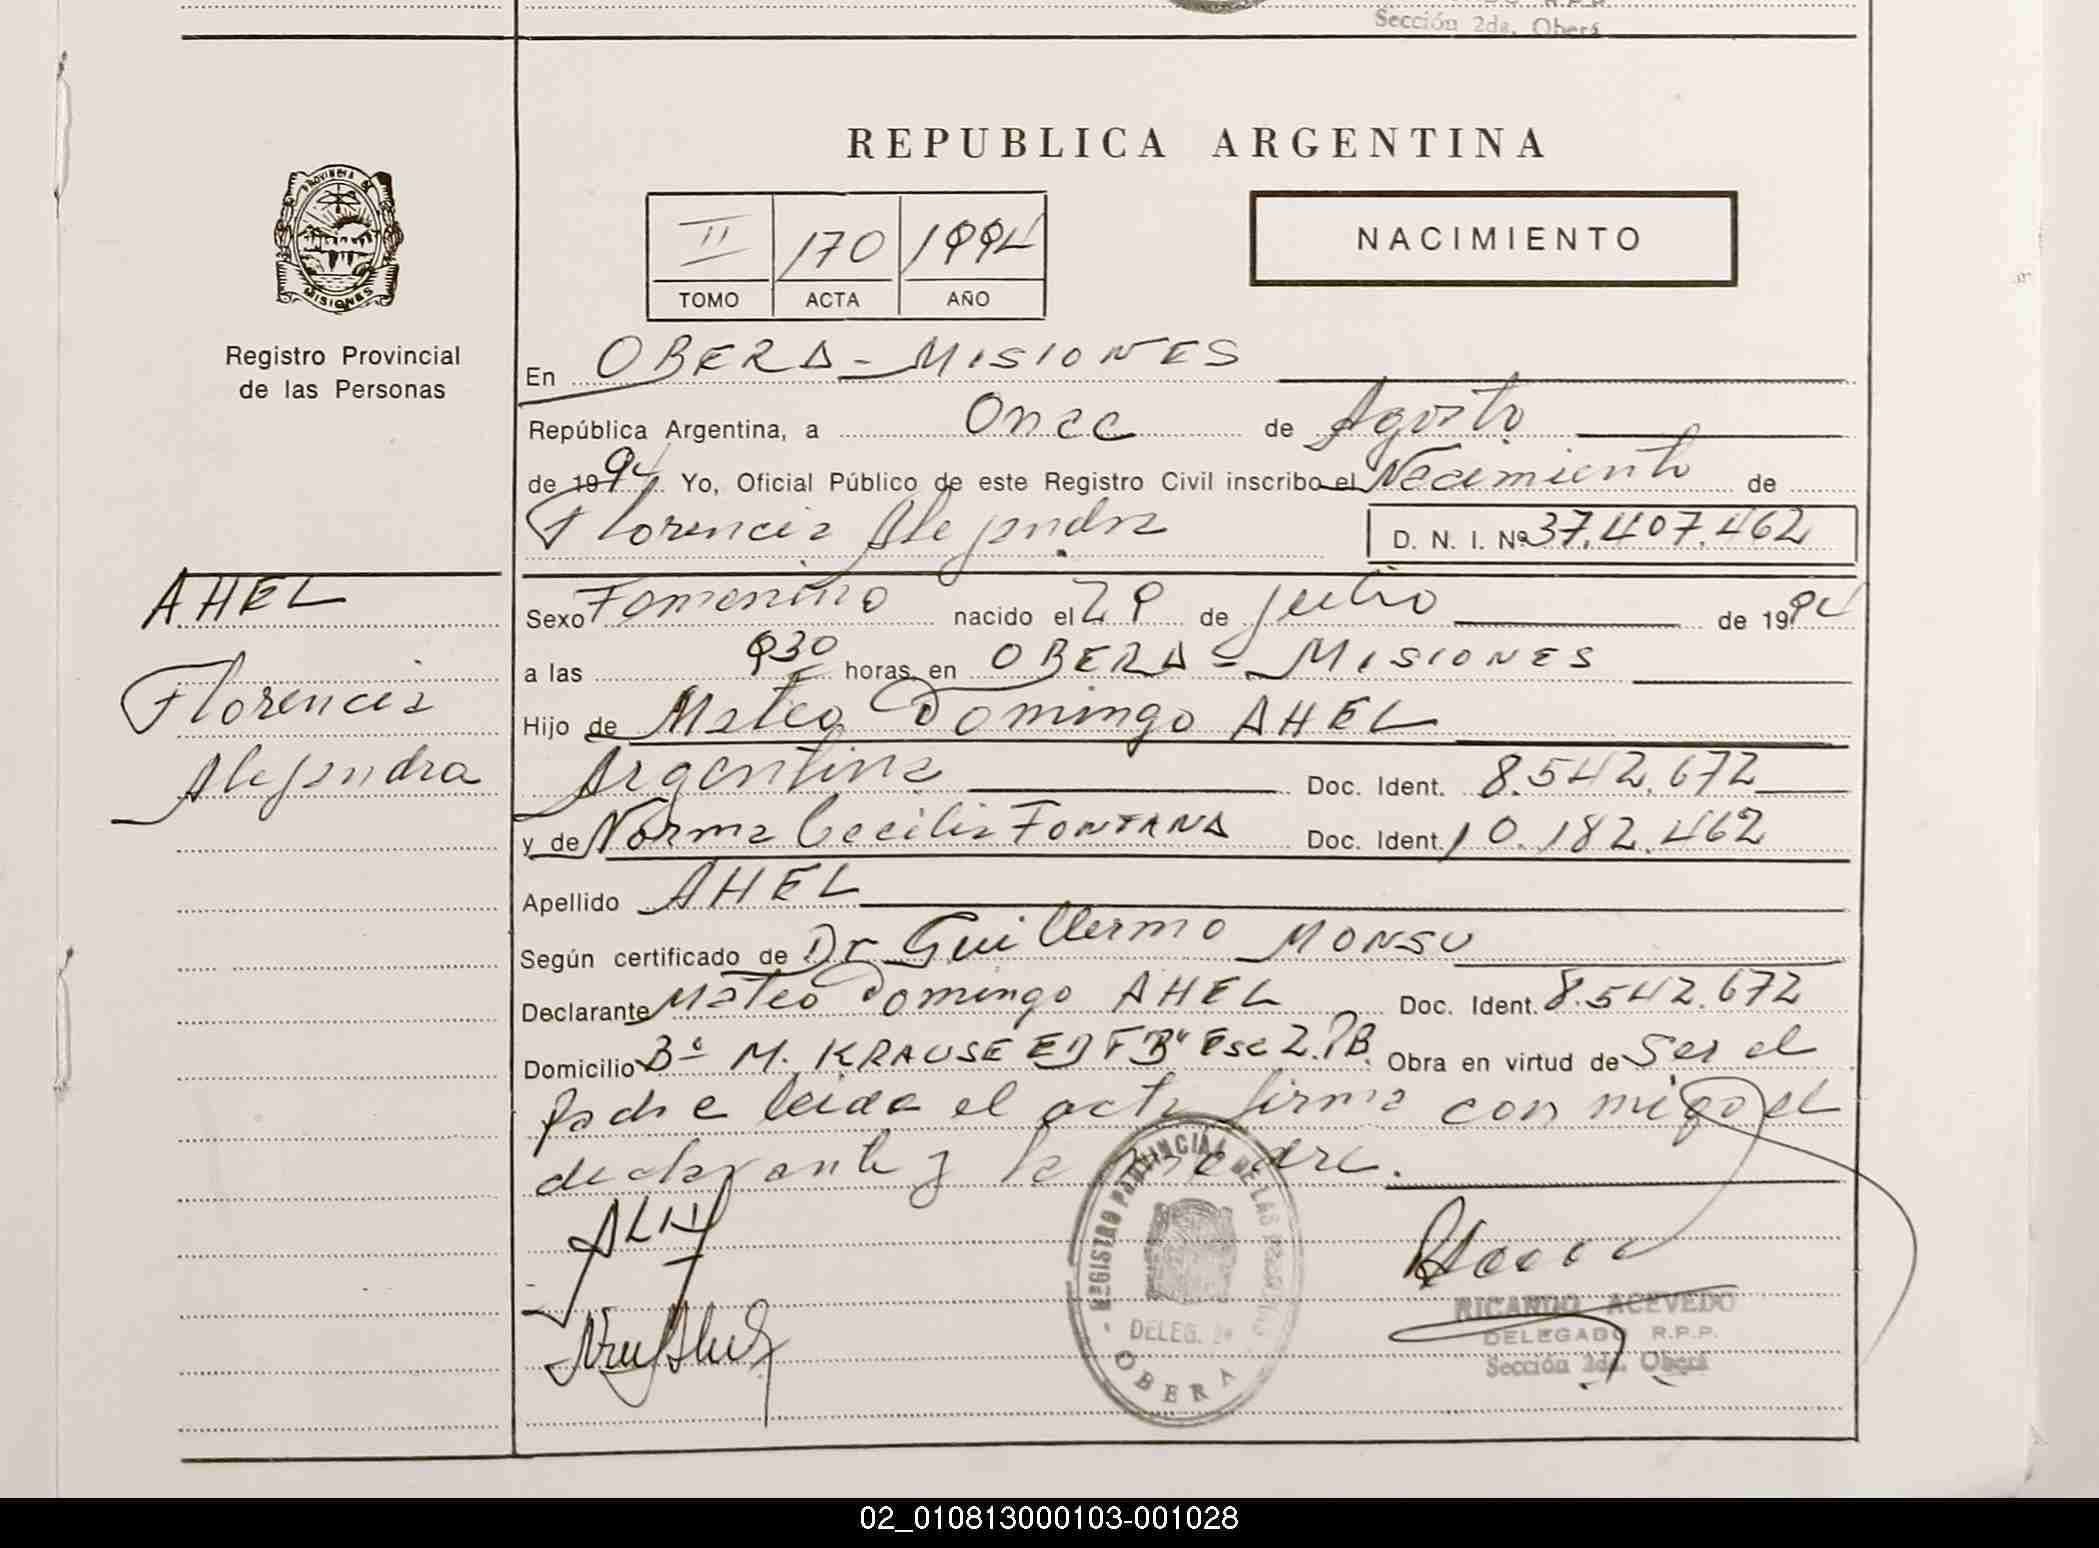 Sección 2da. Oberá
REPUBLICA ARGENTINA
PROVINCIA DE
MISIONES
Registro Provincial
de las Personas
II 170 1994
TOMO ACTA AÑO
NACIMIENTO
En OBERA - MISIONES
República Argentina, a Once de Agosto
de 1994. Yo, Oficial Público de este Registro Civil inscribo el Nacimiento de
Florencia Alejandra D. N. I. Nº 37.407.462
AHEL
Florencia
Alejandra
Sexo Femenino nacido el 29 de Julio de 1994
a las 930 horas, en OBERA - MISIONES
Hijo de Mateo Domingo AHEL
Argentina Doc. Ident. 8.542.672
y de Norma Cecilia FONTANA Doc. Ident. 10.182.462
Apellido AHEL
Según certificado de Dr Guillermo MONSU
Declarante Mateo Domingo AHEL Doc. Ident. 8.542.672
Domicilio Bº M. KRAUSE ED F Bº Esc 2. PB. Obra en virtud de Ser el
padre leida el acta firma con migo el
declarante y la madre.
REGISTRO PROVINCIAL DE LAS PERSONAS
DELEG. 2ª
OBERA
RICARDO ACEVEDO
DELEGADO R.P.P.
Sección 2da. Oberá
02_010813000103-001028